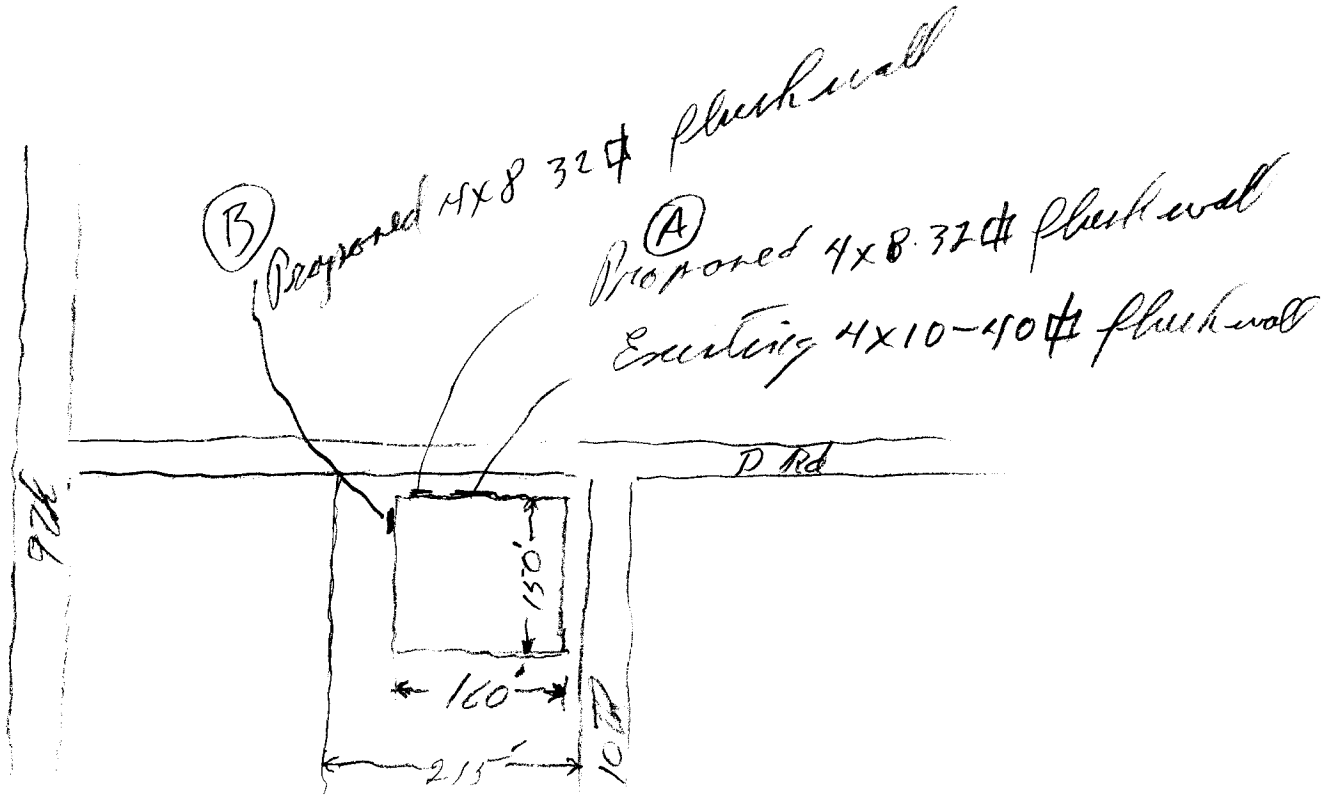 B
Proposed 4x8 32⌗ flush wall
A
Proposed 4x8-32⌗ flush wall
Existing 4x10-40⌗ flush wall
D Rd
9th
150'
160'
215'
10th